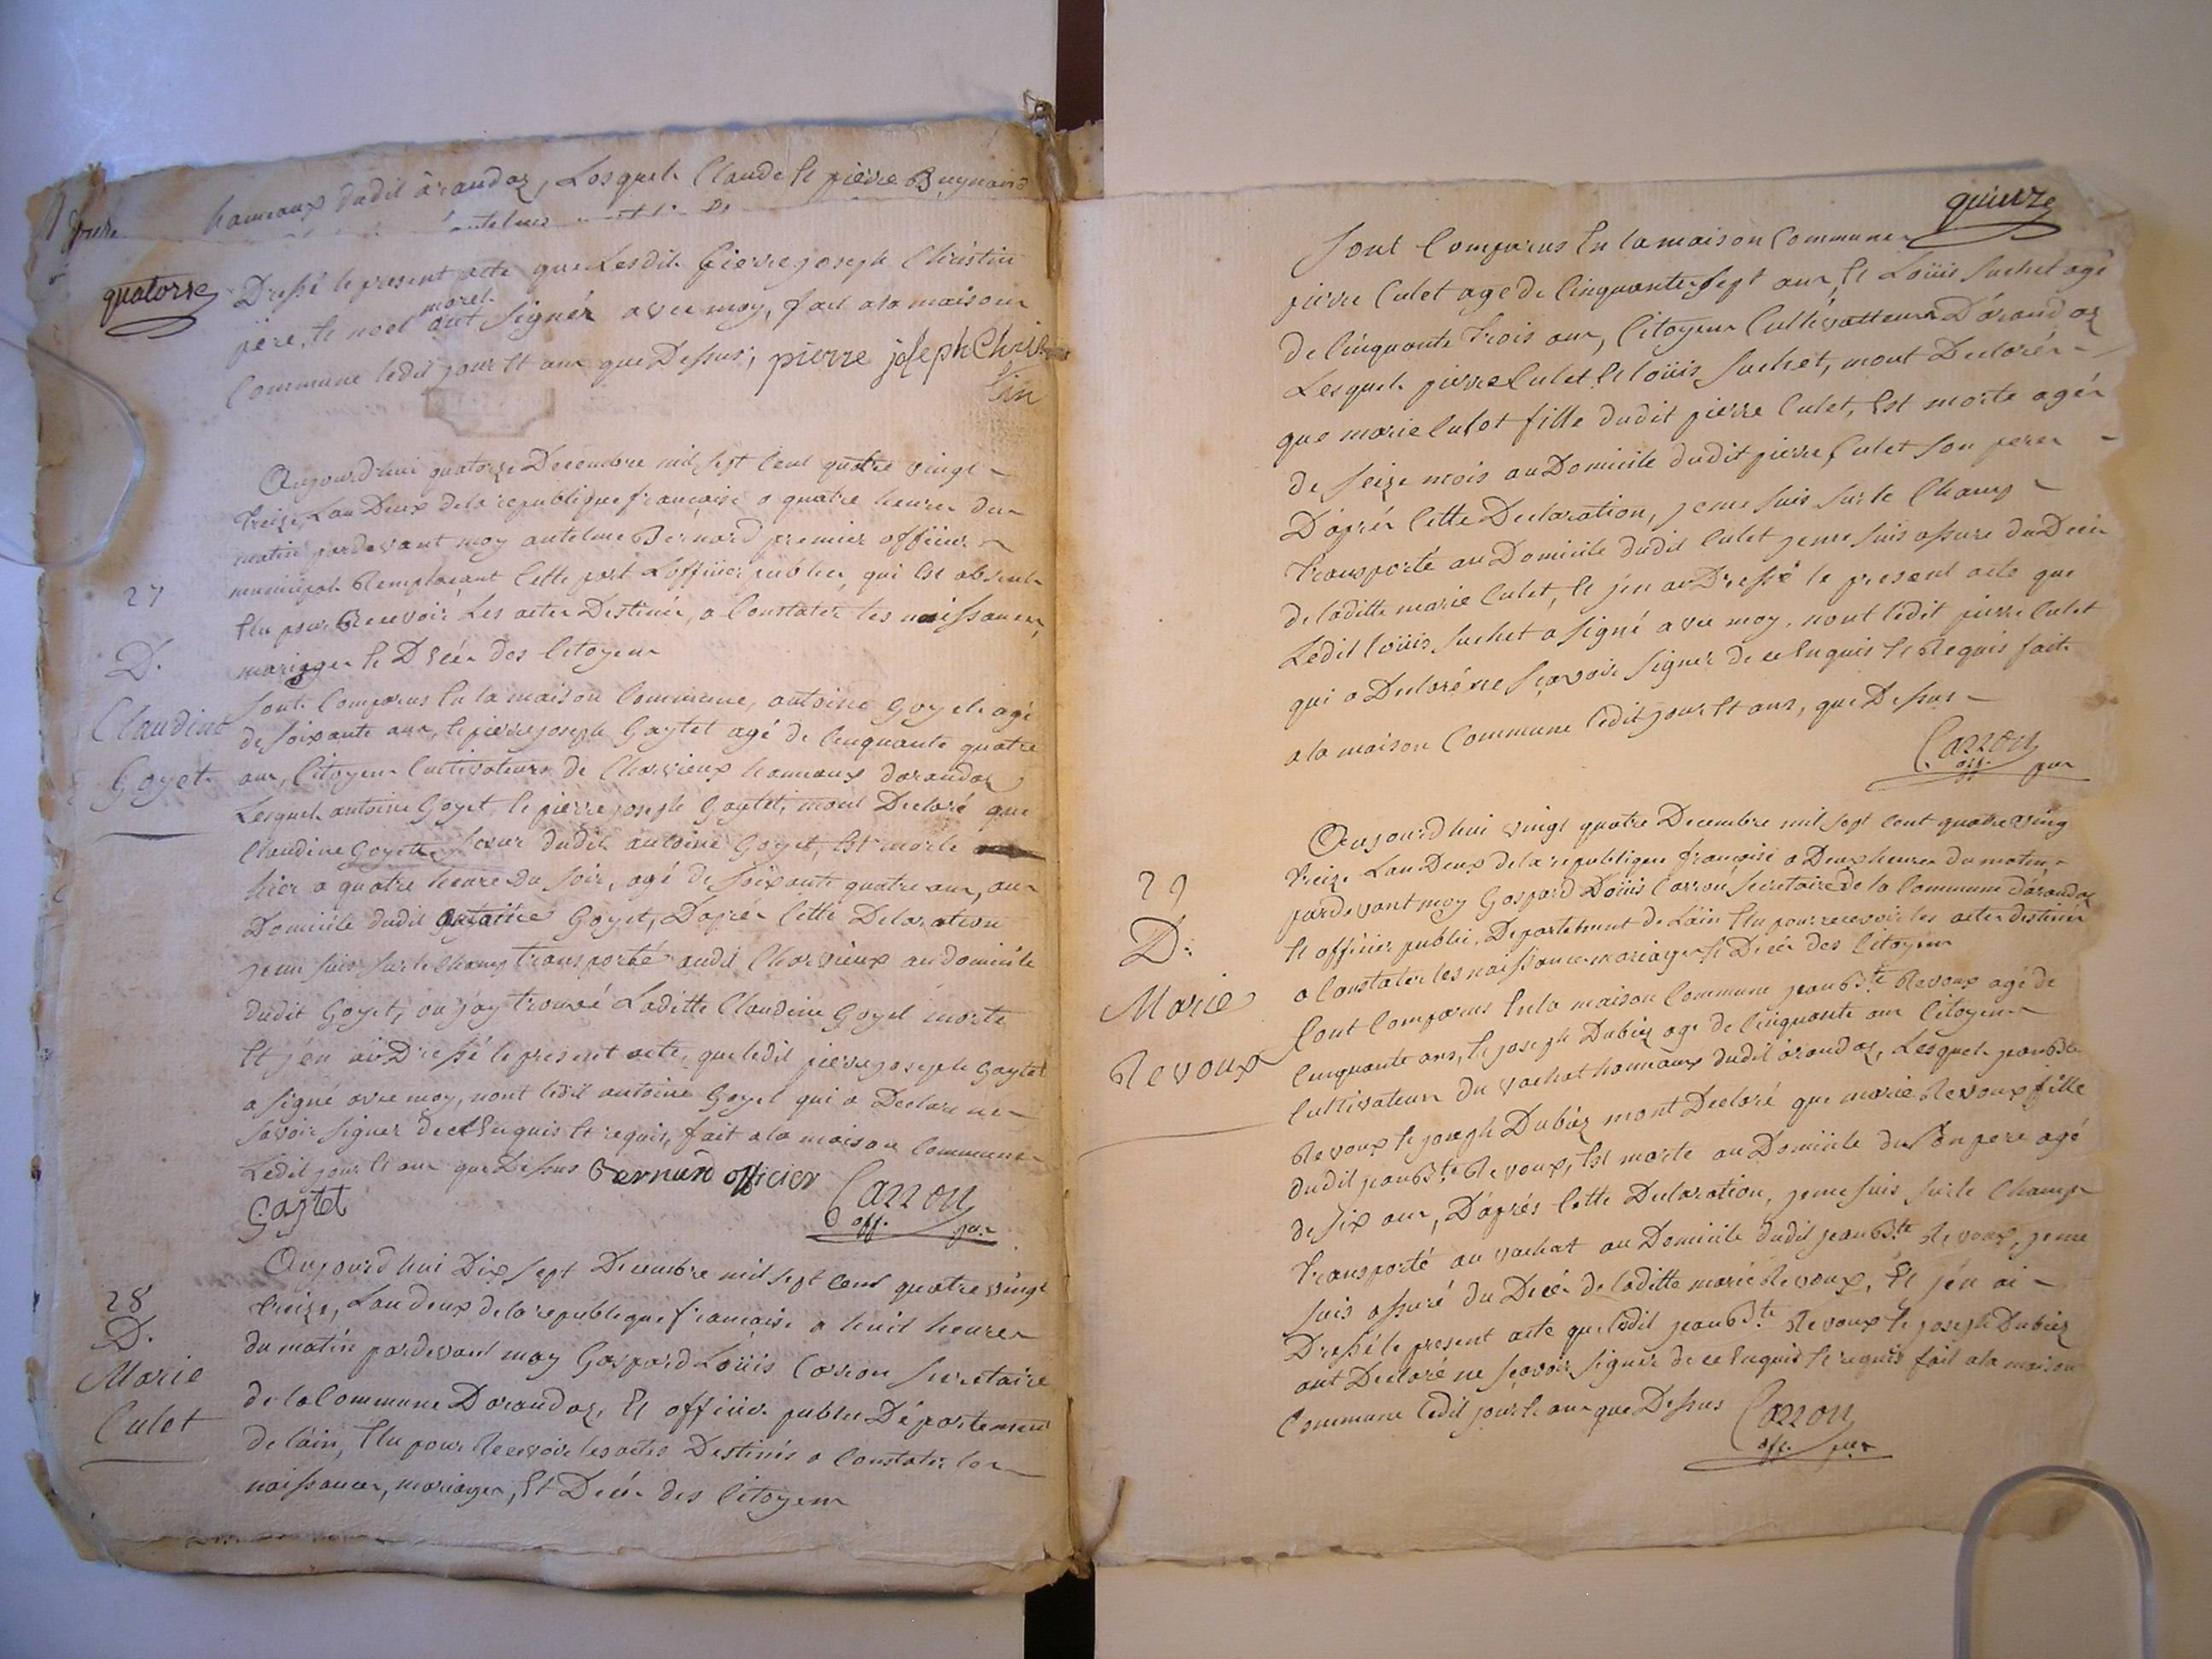 hameaux dudit arandas, Lesquels Claude Et pierre Buynand
quatorse
Dressé le present acte que Lesdits pierre joseph Christin
morel
père, Et noel ont signér avec moy, fait a la maison
Commune ledit jour Et an que Dessus, pierre joseph Chris
tin
Aujourd'hui quatorze Decembre mil sept Cent quatre vingt
treize, Lan Deux de la republique françaisé a quatre heures du
matin pardevant moy antelme Bernard premier officier
municipal Remplaçant Cette part Lofficier public, qui Est absent
Elu pour Recevoir Les actes Destinés, a Constater les naissances,
mariages Et Décès des Citoyens
27
D.
Claudine
Goyet
Sont Comparus En la maison Commune, antoine Goyet agé
de soixante ans, Et pierre joseph Gaytet agé de Cinquante quatre
ans, Citoyens Cultivateurs de Charvieux hameaux darandas
Lesquels antoine Goyet, Et pierre joseph Gaytet, mont Declaré que
Claudine Goyette soeur dudit antoine Goyet, Est morte
hier a quatre heure du soir, agé de soixante quatre ans, au
Domicile dudit antoine Goyet, Daprés Cette Delaration
jeme suis sur le Champ transporté audit Charvieux au domicile
dudit Goyet, ou j'ay trouvé Laditte Claudine Goyet morte
Et j'én ai Dressé le present acte, que ledit pierre joseph Gaytet
a signé avec moy, nont ledit antoine Goyet qui a Declare ne
savoir signer de ce Enquis Et requis, fait a la maison Commune
Ledit jour Et an que Dessus Bernard officier
Gaytet
Carron
off. pu.
28
D.
Marie
Culet
Aujourd'hui Dix sept Decembre mil sept Cent quatre vingt
treize, Lan deux de la republique francaise a huit heures
du matin pardevant moy Gaspard Loüis Carron secretaire
de la Commune Darandas, Et officier public Département
de lain, Elu pour Recevoir les actes Destinés a Constater les
naissances, mariages, Et Décés des Citoyens
quinze
Sont Comparus En la maison Commune
pierre Culet agé de Cinquante sept ans, Et Loüis suchet agé
de Cinquante trois ans, Citoyens Cultivatteurs D'arandas
Lesquels pierre Culet Et loüis suchet, mont Declarés
que marie Culet fille dudit pierre Culet, Est morte agés
de seize mois au Domicile dudit pierre Culet son peres
D'aprés Cette Declaration, jeme suis sur le Champ
transporté au Domicile dudit Culet jeme suis assuré du Décés
deladitte marie Culet, Et j'en ai Dressé le present acte que
Ledit loüis suchet a signé avec moy, nont ledit pierre Culet
qui a Declaré ne sçavoir signer de ce Enquis Et Requis fait
a la maison Commune ledit jour Et ans, que Dessus
Carron
off. pu
29
D.
Marie
Revoux
Aujourdhui vingt quatre Decembre mil sept cent quatre ving
treize Lan Deux de la republique françaisé a Deux heures du matin,
pardevant moy Gaspard Loüis Carron secretaire de la Commune d'arandas
Et officier public, Departetment de Lain Elu pour recevoir les actes destinés
a Constater les naissances mariages Et Décés des Citoyens
Sont Comparus En la maison Commune jean Bte Revoux agé de
Cinquante ans, Et joseph Dubiez agé de Cinquante ans Citoyens
Cultivateurs du vachat hameaux dudit arandas, Lesquels jean Bte
Revoux Et joseph Dubiéz mont Declaré que marie Revoux fille
dudit jean Bte Revoux, Est morte au Domicile du Son pere agé
de six ans, D'aprés Cette Declaration, jeme suis sur le Champ
transporté au vachat au Domicile dudit jean Bte Revoux, jeme
suis assuré du Décés de laditte marie Revoux, Et j'én ai
Dressé le present acte que ledit jean Bte Revoux Et joseph Dubiez
ont Declaré ne sçavoir signer de ce Enquis Et requis fait a la maison
Commune ledit jour Et an que Dessus Carron
off. pu.